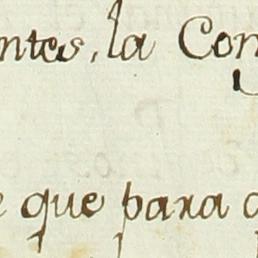 ntes, la Con
e que para